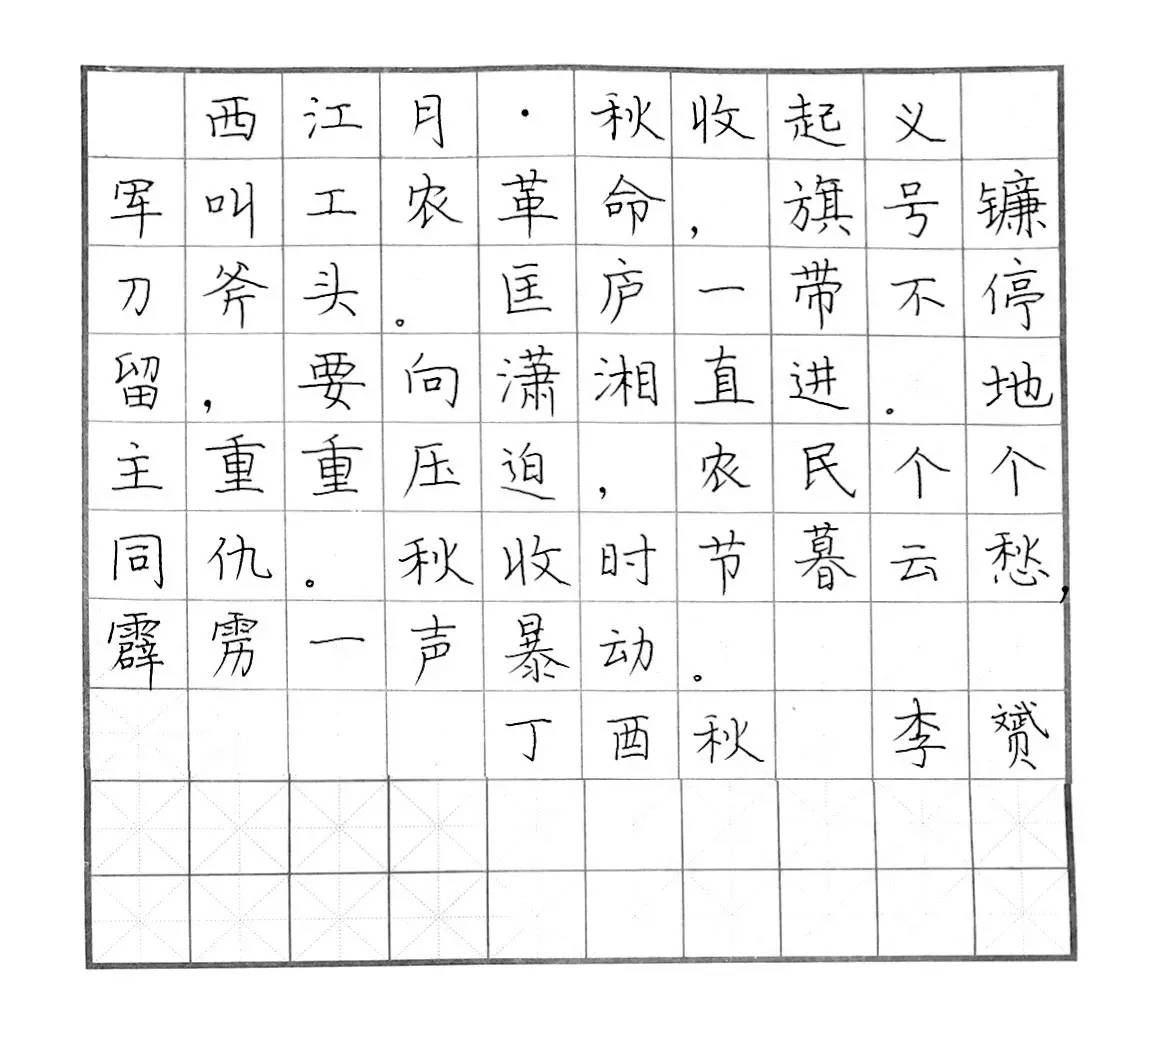 西江月·秋收起义
军叫工农革命，旗号镰
刀斧头。匡庐一带不停
留，要向潇湘直进。地
主重重压迫，农民个个
同仇。秋收时节暮云愁，
霹雳一声暴动。
丁酉秋 李赟